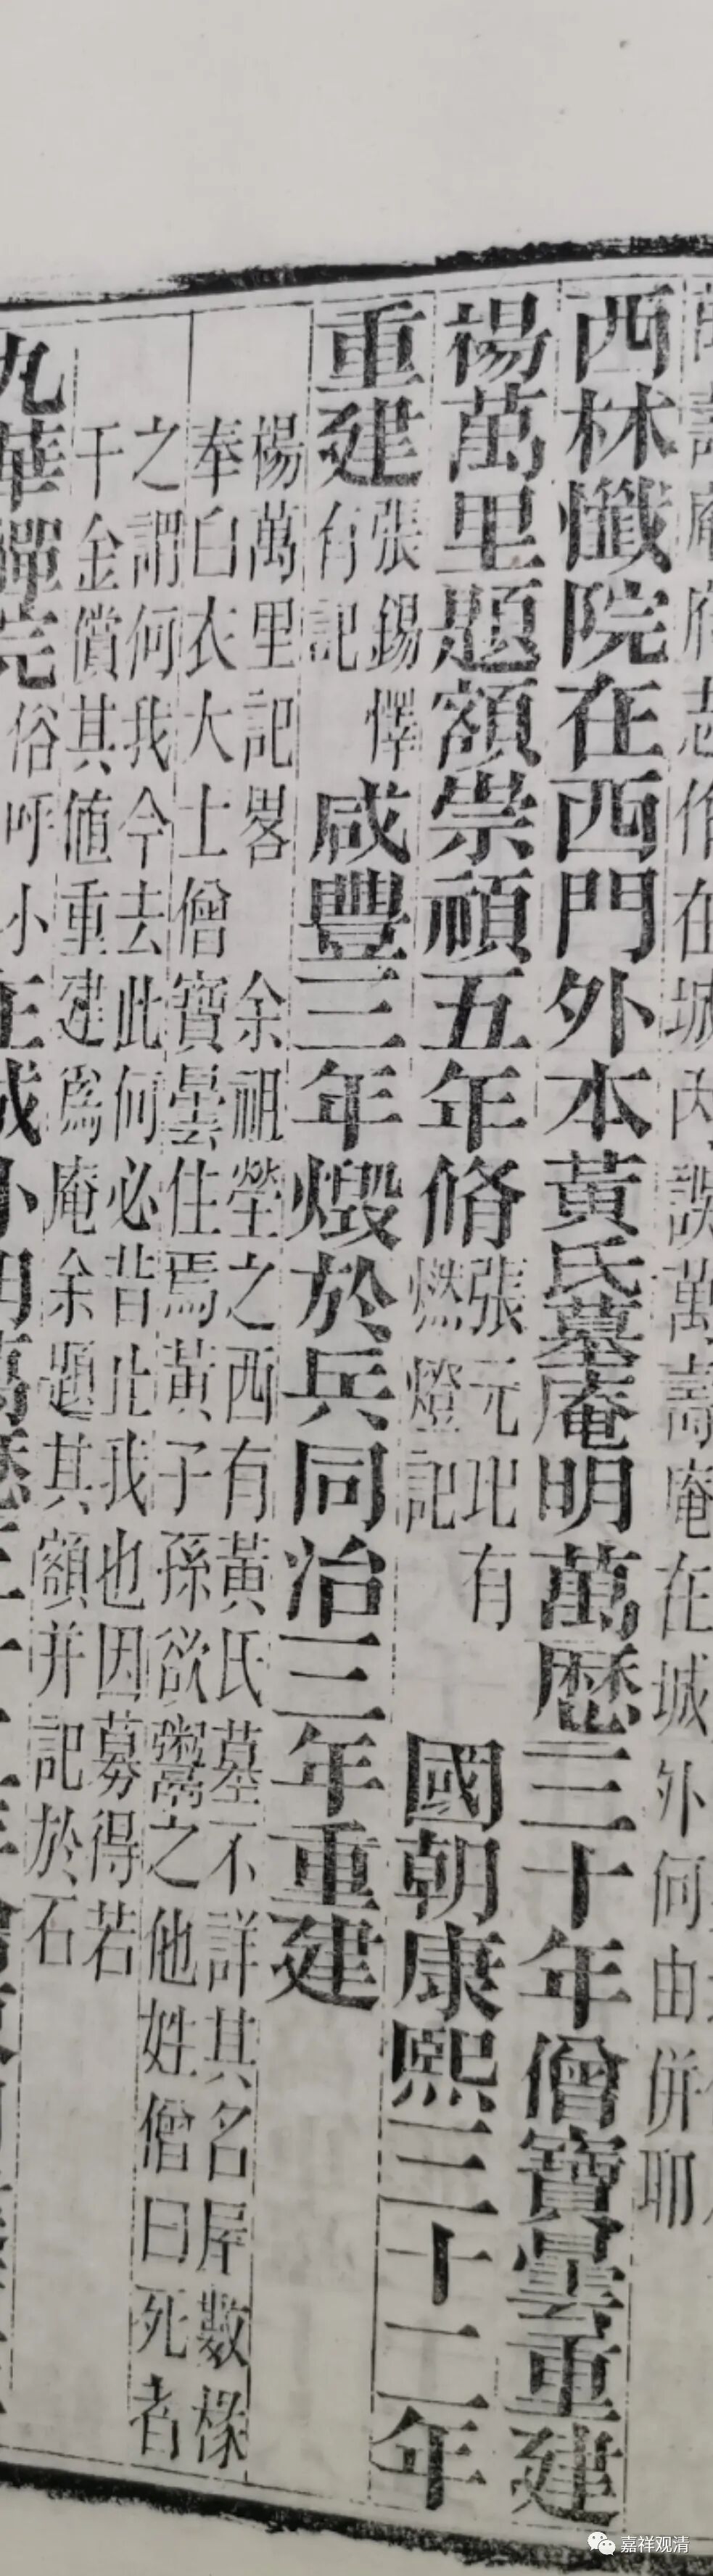 庵府志作在城內誤萬壽庵在城外何由併耶
西林懺院在西門外本黃氏墓庵明萬歷三十年僧寶曇重建
楊萬里題額崇禎五年脩
張元玭有
燃燈記
國朝康熙三十二年
重建
張錫懌
有記
咸豐三年燬於兵同治三年重建
楊萬里記畧
余祖塋之西有黃氏墓不詳其名屋數椽
奉白衣大士僧寶曇住焉黃子孫欲鬻之他姓僧曰死者
之謂何我今去此何必昔止我也因募得若
干金償其値重建爲庵余題其額幷記於石
九華禪院
俗呼小
嘉祥观清